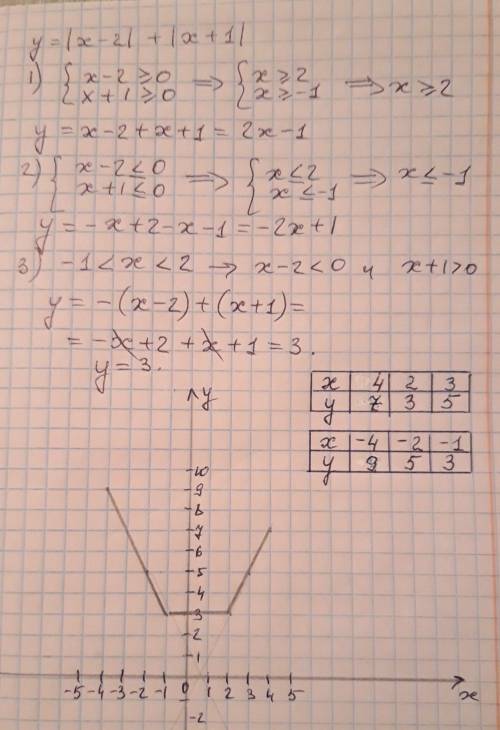 y = |x-2| + |x+1|
1) { x-2 ≥ 0 ⇒ { x ≥ 2 ⇒ x ≥ 2
x+1 ≥ 0 x ≥ -1
y = x-2+x+1 = 2x-1
2) { x-2 ≤ 0 ⇒ { x ≤ 2 ⇒ x ≤ -1
x+1 ≤ 0 x ≤ -1
y = -x+2-x-1 = -2x+1
3) -1 < x < 2 → x-2 < 0 и x+1 > 0
y = -(x-2)+(x+1) =
= -x+2+x+1 = 3.
y = 3.
x 4 2 3
y 7 3 5
x -4 -2 -1
y 9 5 3
y
10
9
8
7
6
5
4
3
2
1
-5 -4 -3 -2 -1 0 1 2 3 4 5 x
-2